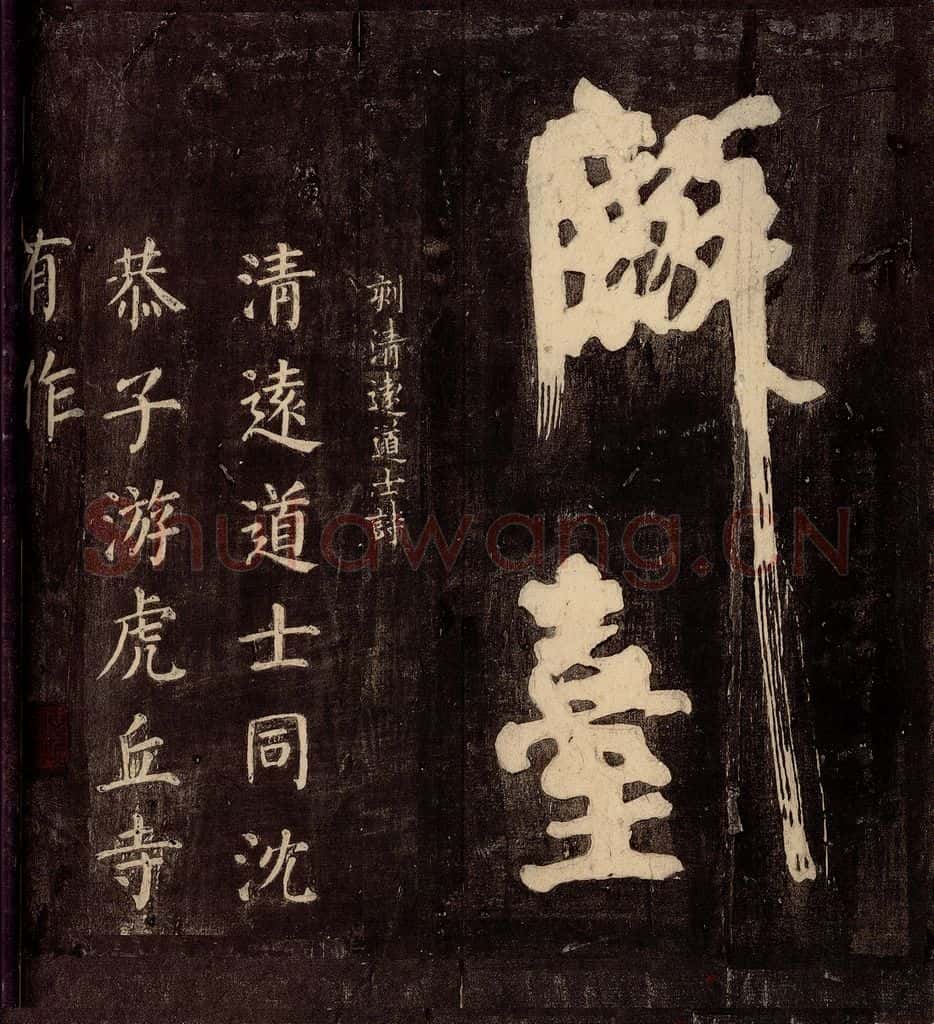 臺
刻清遠道士詩
清遠道士同沈
恭子游虎丘寺
有作
Shufawang.CN